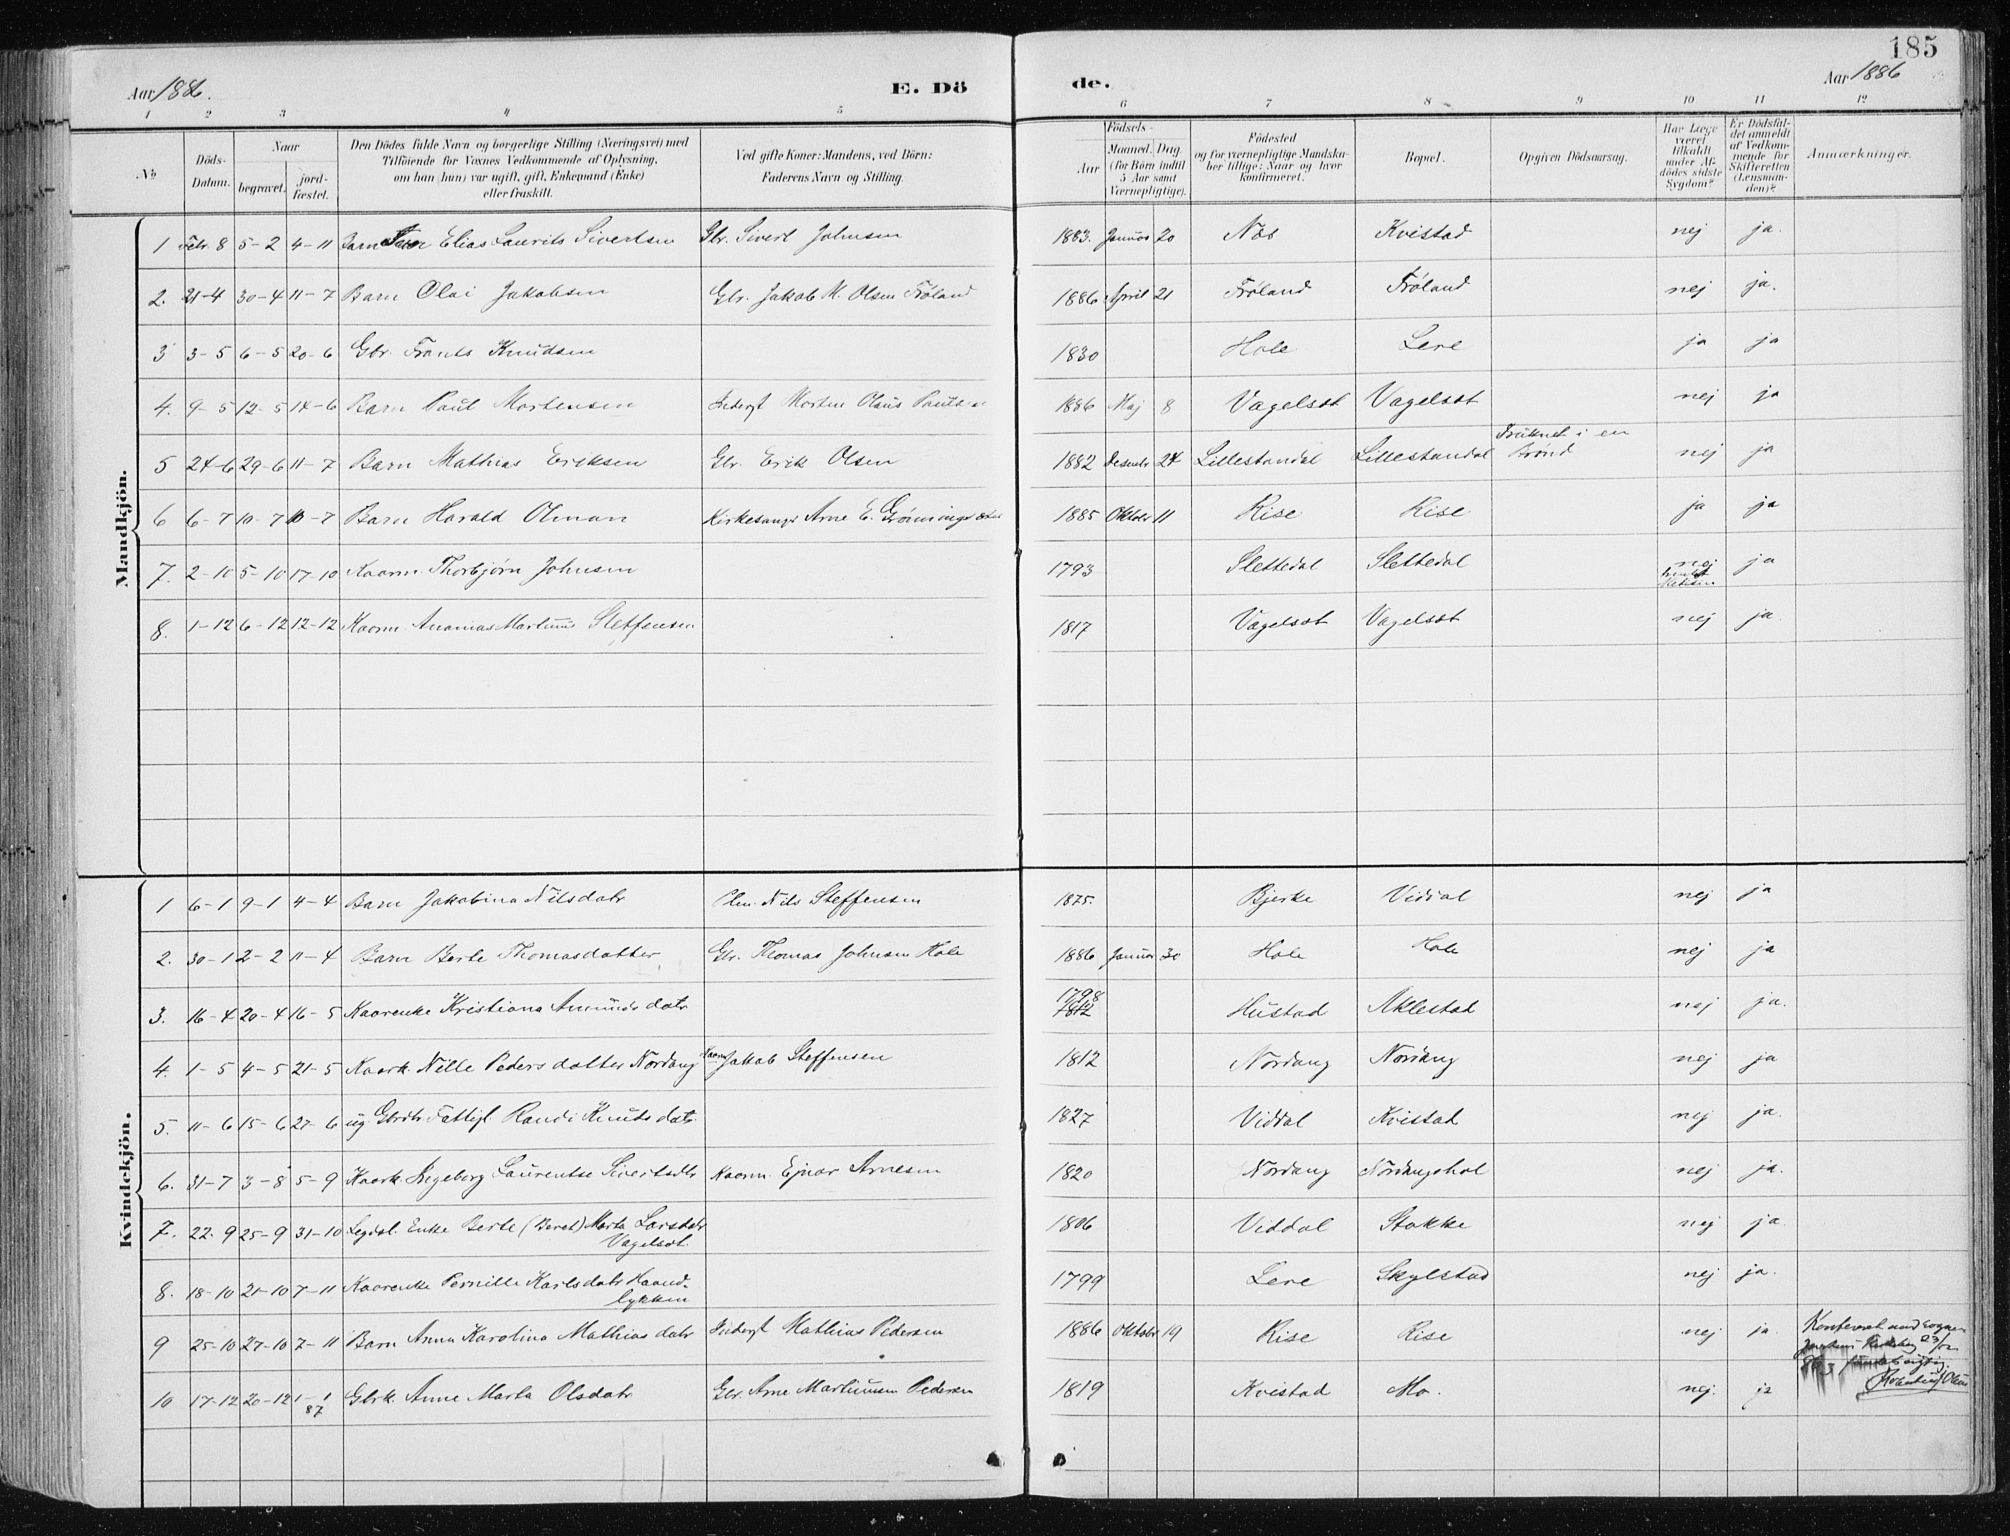 185
Aar 1886.
E. Dö
de.
Aar 1886
1 2 3 4 5 6 7 8 9 10 11 12
No
Döds-Datum.
Naar
begravet.
jord-fæstet.
Den Dödes fulde Navn og borgerlige Stilling (Næringsvei) med
Tilföiende for Voxnes Vedkommende af Oplysning,
om han (hun) var ugift, gift, Enkemand (Enke)
eller fraskilt.
Ved gifte Koner: Mandens, ved Börn:
Faderens Navn og Stilling.
Födsels-
Aar
Maaned. Dag
(for Börn indtil
5 Aar samt
Værnepligtige).
Födested
og for værnepligtige Mandska-
ber tillige: Naar og hvor
konfirmeret.
Bopæl.
Opgiven Dödsaarsag.
Har Læge
været
tilkaldt
under Af-
dödes sidste
Sygdom?
Er Dödsfal-
det anmeldt
af Vedkom-
mende for
Skifteretten
(Lensman-
den)?
Anmærkninger.
Mandkjön.
1 Febr. 8 5-2 4-11 Barn Elias Laurits Sivertsen Gbr. Sivert Johnsen 1883. Januar 20 Nes Kvistad nej ja.
2. 21-4 30-4 11-7 Barn Olai Jakobsen Gbr. Jakob M. Olsen Fröland 1886 April 21 Fröland Fröland nej ja.
3 3-5 6-5 20-6 Gbr. Frants Knudsen 1830 Hole Lere ja ja
4. 9-5 12-5 14-6 Barn Paul Mortensen Inderst Morten Olaus Paulsen 1886 Maj 8 Vagelsæt Vagelsæt nej ja
5 24-6 29-6 11-7 Barn Mathias Eriksen Gbr. Erik Olsen 1882 Desembr 24 Lillestandal Lillestandal Druknet i en Brönd nej ja
6 6-7 10-7 10-7 Barn Harald Olman Kirkesanger Arne E. Grönningsæter 1885 Oktobr 11 Rise Rise ja ja
7. 2-10 5-10 17-10 Kaarm. Thorbjørn Johnsen 1793 Slettedal Slettedal nej ja
8. 1-12 6-12 12-12 Kaarm. Ananias Martinus Steffensen 1817 Vagelsæt Vagelsæt nej ja.
Kvindekjön.
1 6-1 9-1 4-4 Barn Jakobina Nilsdatr Nils Steffensen 1875. Bjerke Viddal nej ja
2. 30-1 2-2 11-4 Barn Berte Thomasdatter Gbr. Thomas Johnsen Hole 1886 Januar 30 Hole Hole nej ja
3. 16-4 20-4 16-5 Kaarenke Kristiana Amundsdatr 1798 1812 Hustad Aklestad nej ja.
4. 1-5 4-5 21-5 Kaark. Nille Pedersdatter Nordang Kaarm Jakob Steffensen 1812 Nordang Nordang nej ja
5. 11-6 15-6 27-6 ug. Gbrdtr. Fattigl. Randi Knutsdatr 1827 Viddal Kvistad nej ja.
6. 31-7 3-8 5-9 Kaark. Ingeborg Laurentse Sivertsdtr Kaarm. Ejnar Arnesen 1820 Nordang Nordangshol nej ja.
7. 22-9 25-9 31-10 Legdsl. Enke Berte (Beret) Marta Larsdatr Vagelsæt 1806 Viddal Stokke nej ja
8. 18-10 21-10 7-11 Kaarenke Pernille Karlsdatr Haand-
lykken 1799 Lere Skylstad nej ja.
9 25-10 27-10 7-11 Barn Anna Karolina Mathiasdatr Inderst Mathias Pedersen 1886 Oktobr 19 Rise Rise nej ja.
10 17-12 20-12 1-1 87 Gbrk. Anne Marta Olsdatr Gbr. Arne Martinusen Pedersen 1819 Kvistad Mo. nej. ja
Konfereret med